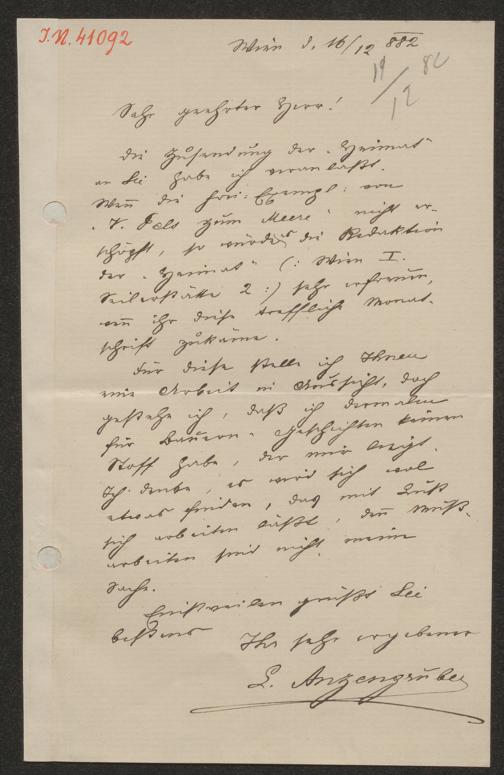 I.N. 41092
Wien d. 16/12 882
19/12 82
Sehr geehrter Herr!
Die Zusendung der „Heimat“
an Sie habe ich veranlaßt.
Wenn die Frei-Exempl: von
„V. Fels zum Meere“ nicht er-
schöpft, so würde es die Redaktion
der „Heimat“ (: Wien I.
Seilerstätte 2 :) sehr erfreuen,
wenn ihr diese treffliche Monat-
schrift zukäme.
Für diese stelle ich Ihnen
eine Arbeit in Aussicht, doch
gestehe ich, daß ich dermalen
für Bauern-Geschichten keinen
Stoff habe, der mir beigt.
Ich denke, es wird sich wol
etwas finden, das mit Lust
sich arbeiten läßt, denn Muß-
arbeiten sind nicht meine
Sache.
Einstweilen grüßt Sie
bestens
Ihr sehr ergebener
L. Anzengruber